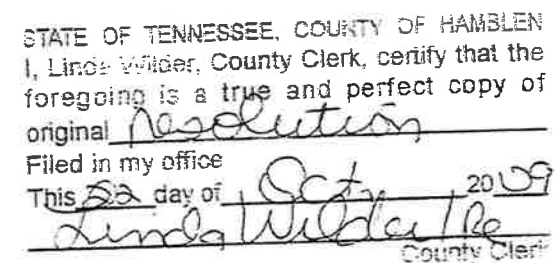 STATE OF TENNESSEE, COUNTY OF HAMBLEN
I, Linda Wilder, County Clerk, certify that the
foregoing is a true and perfect copy of
original Resolution
Filed in my office
This 22 day of Oct, 2009
Linda Wilder/Re
County Clerk